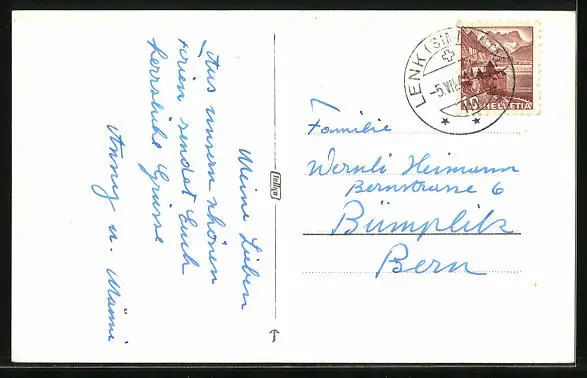 Meine Lieben
Aus unsern schönen
Ferien sendet Euch
herzliche Grüsse
Anny u.
Tellko
LENK (SIMMENTAL)
-5.VII
10
HELVETIA
Familie
Wernli Heimann
Bernstrasse 6
Bümpliz
Bern